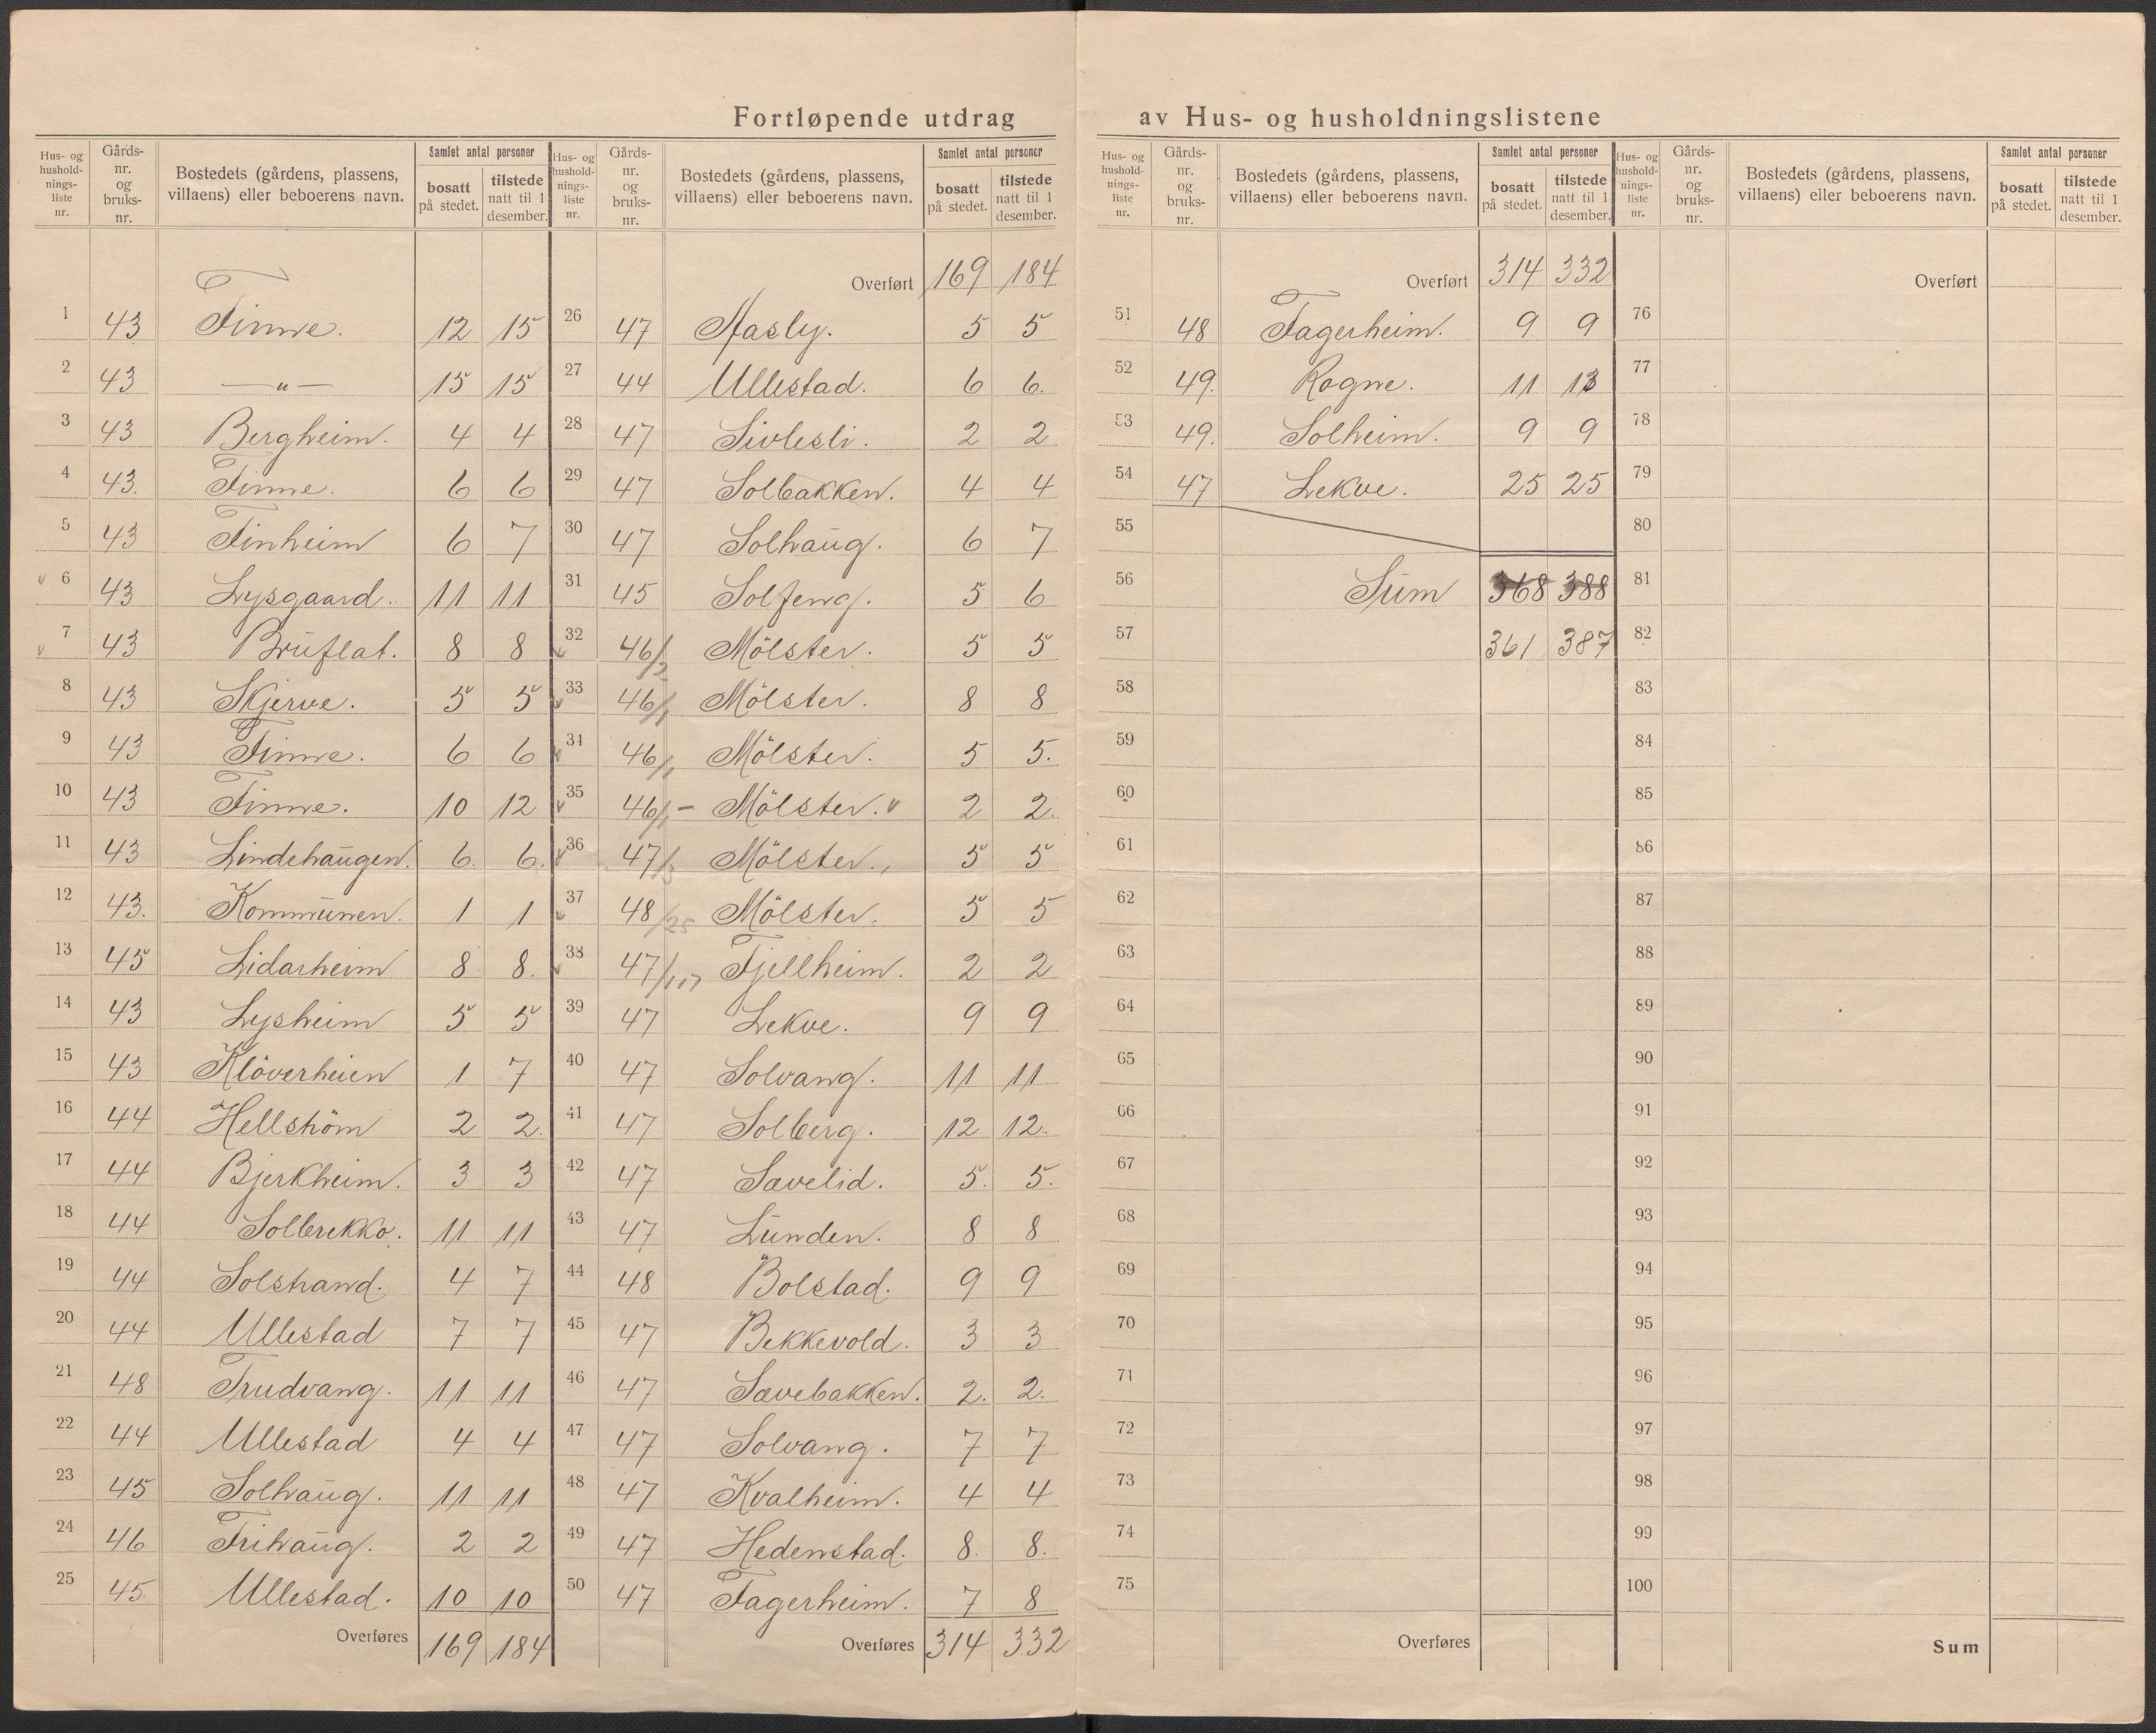 Fortløpende utdrag av Hus- og husholdningslistene
Hus- og hushold- nings- liste nr. | Gårds- nr. og bruks- nr. | Bostedets (gårdens, plassens, villaens) eller beboerens navn. | Samlet antal personer | bosatt på stedet. | tilstede natt til 1 desember.
1 43 Finne. 12 15
2 43 —"— 15 15
3 43 Bergheim. 4 4
4 43. Finne. 6 6
5 43 Finheim 6 7
v 6 43 Lysgaard. 11 11
v 7 43 Bruflat. 8 8
8 43 Skjerve. 5 5
9 43 Finne. 6 6
10 43 Finne. 10 12
11 43 Lindehaugen. 6. 6.
12 43. Kommunen. 1 1
13 45 Lidarheim 8 8.
14 43 Lysheim 5 5
15 43 Klöverheien 1 7
16 44 Hellström 2 2.
17 44 Bjerkheim. 3 3
18 44 Solbrekko. 11 11
19 44 Solstrand. 4 7
20 44 Ullestad 7 7
21 48 Trudvang. 11 11
22 44 Ullestad 4 4
23 45 Solhaug. 11 11
24 46 Frihaug. 2 2
25 45. Ullestad. 10 10
Overføres 169 184
Hus- og hushold- nings- liste nr. | Gårds- nr. og bruks- nr. | Bostedets (gårdens, plassens, villaens) eller beboerens navn. | Samlet antal personer | bosatt på stedet. | tilstede natt til 1 desember.
Overført 169 184
26 47 Aasly. 5 5
27 44 Ullestad. 6 6.
28 47 Sivlesli. 2 2
29 47 Solbakken. 4 4
30 47 Solhaug. 6 7
31 45 Solfeng. 5 6
v 32 46/2 Mölster. 5 5
v 33 46/1 Mölster. 8 8
v 34 46/1 Mölster. 5 5.
v 35 46/1 – Mölster. v 2 2.
v 36 47/3 Mölster. 5 5
v 37 48/25 Mölster. 5 5
v 38 47/117 Fjellheim. 2 2
39 47 Lekve. 9 9
40 47 Solvang. 11 11
41 47 Solberg. 12 12.
42 47 Sævelid. 5. 5.
43 47 Lunden. 8 8
44 48 Bolstad. 9 9
45 47 Bekkevold. 3 3
46 47 Sævebakken. 2. 2.
47 47 Solvang. 7 7
48 47 Kvalheim. 4 4
49 47 Hedenstad. 8. 8.
50 47 Fagerheim. 7 8
Overføres 314 332
Hus- og hushold- nings- liste nr. | Gårds- nr. og bruks- nr. | Bostedets (gårdens, plassens, villaens) eller beboerens navn. | Samlet antal personer | bosatt på stedet. | tilstede natt til 1 desember.
Overført 314 332
51 48 Fagerheim. 9 9
52 49. Rogne. 11 13
53 49. Solheim. 9 9
54 47 Lekve. 25 25
55
56 Sum 368 388
57 361 387
58
59
60
61
62
63
64
65
66
67
68
69
70
71
72
73
74
75
Overføres
Hus- og hushold- nings- liste nr. | Gårds- nr. og bruks- nr. | Bostedets (gårdens, plassens, villaens) eller beboerens navn. | Samlet antal personer | bosatt på stedet. | tilstede natt til 1 desember.
Overført
76
77
78
79
80
81
82
83
84
85
86
87
88
89
90
91
92
93
94
95
96
97
98
99
100
Sum